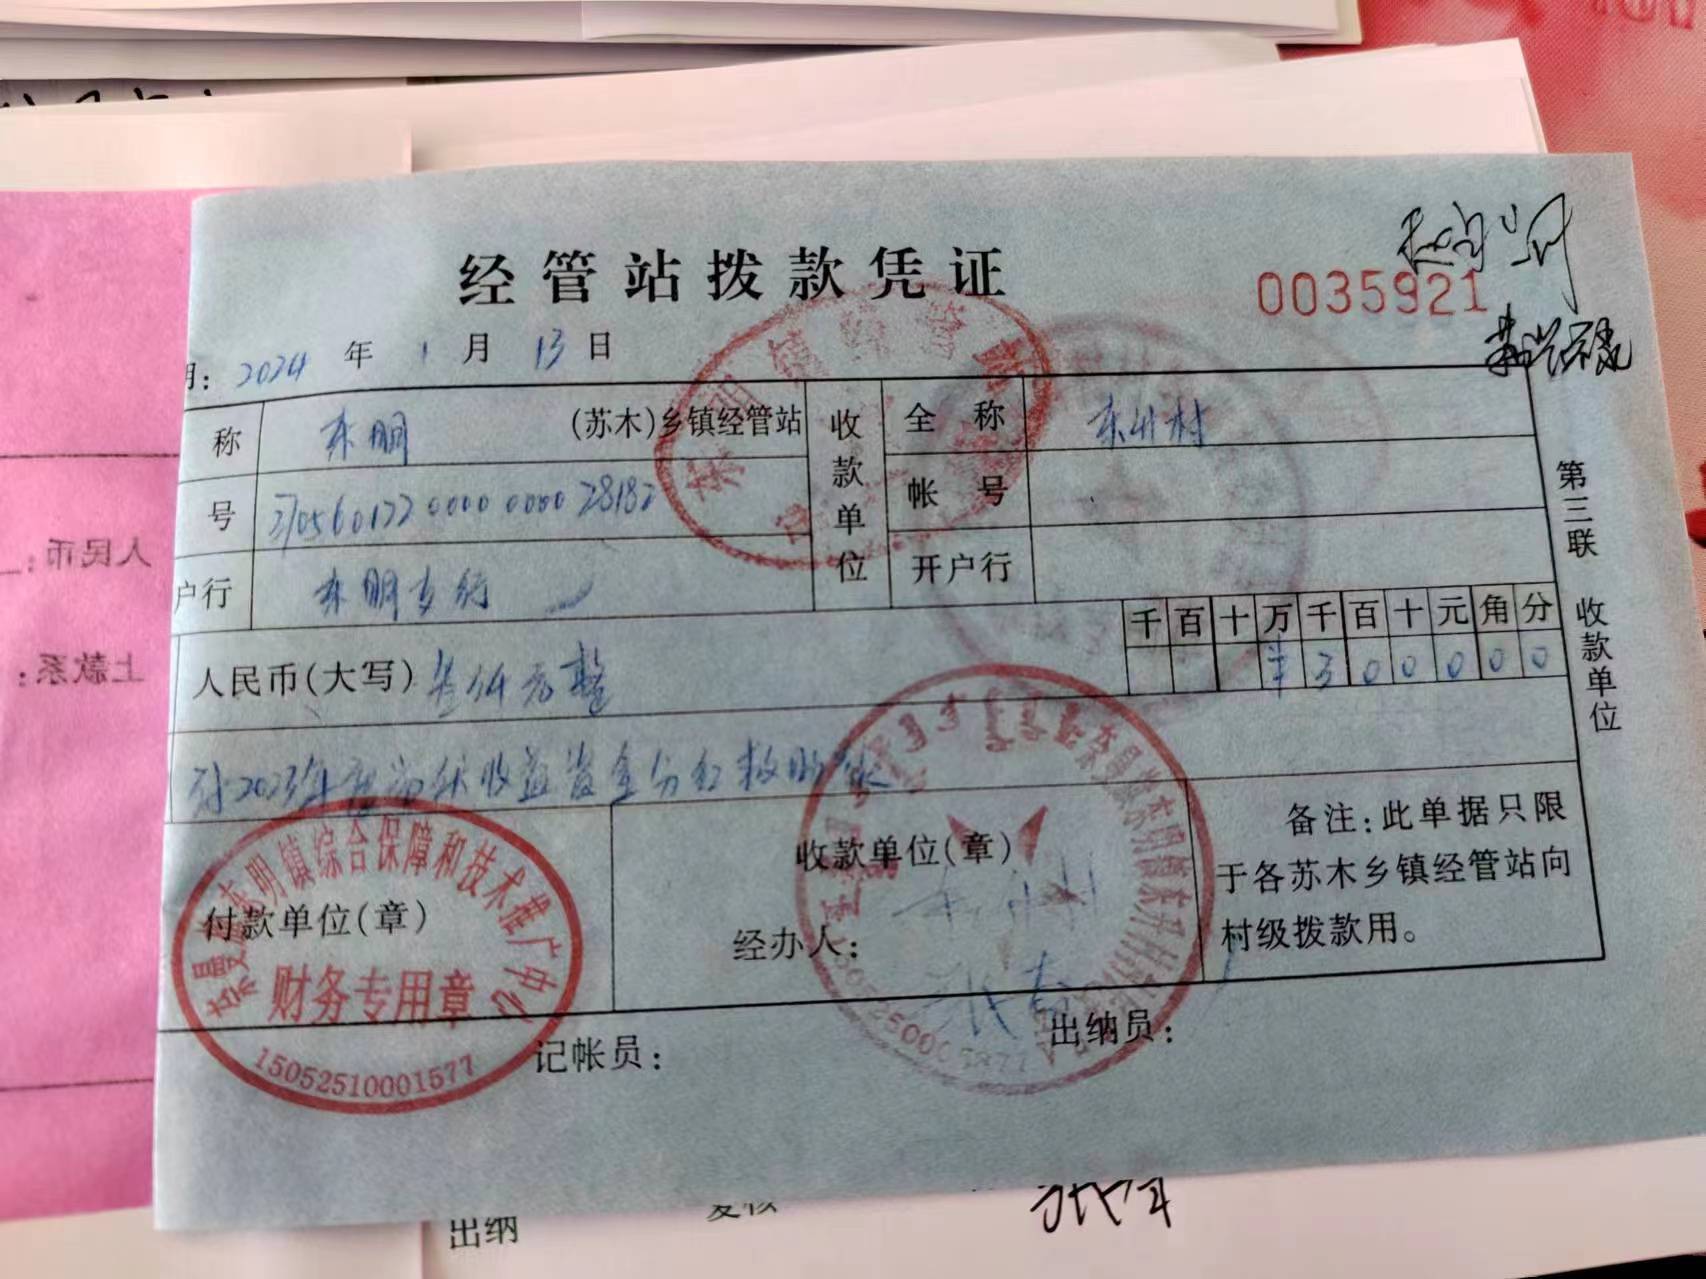 经管站拨款凭证
0035921
期: 2024 年 1 月 13 日
称 东明 (苏木)乡镇经管站
号
户行 东明支行
收款单位
全称 东升村
帐号
开户行
千百十万千百十元角分
¥300000
人民币(大写) 叁仟元整
付2023年度光伏收益资金分红救助款
付款单位(章)
收款单位(章)
东升村
经办人:
备注:此单据只限
于各苏木乡镇经管站向
村级拨款用。
记帐员:
出纳员:
第三联 收款单位
奈曼旗东明镇综合保障和技术推广中心
财务专用章
15052510001577
出纳
复核
人民币:
上款系: